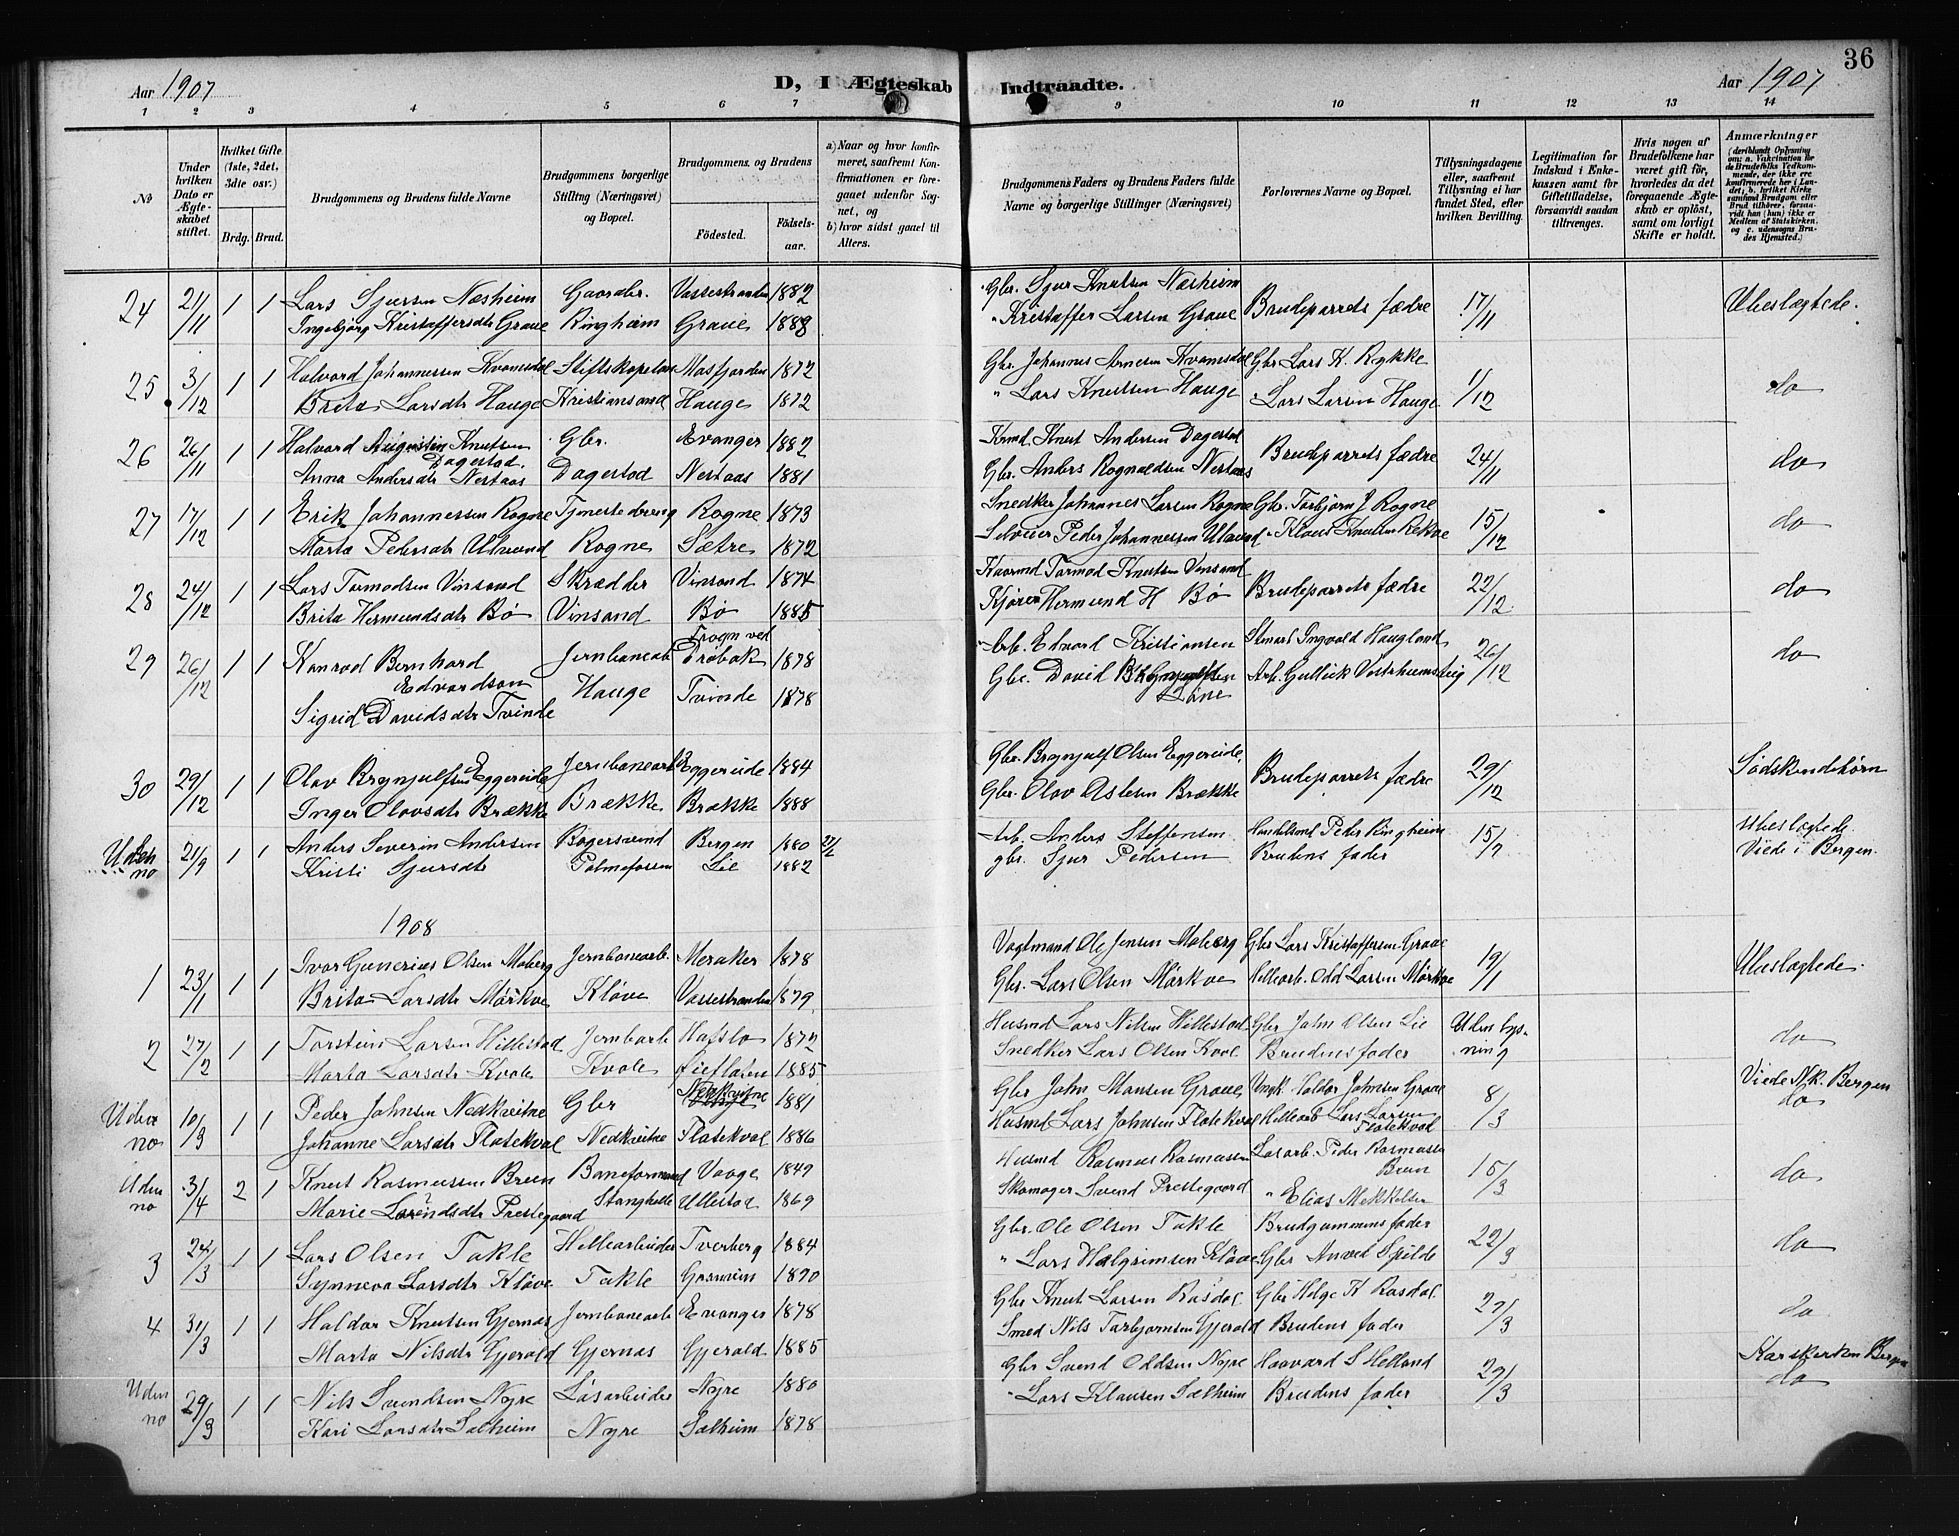 36
Aar 1907
D, I Ægteskab Indtraadte.
Aar 1907
1 2 3 4 5 6 7 9 10 11 12 13 14
No
Under hvilken Dato er Ægteskabet stiftet.
Hvilket Gifte (1ste, 2det, 3die osv.)
Brdg. Brud.
Brudgommens og Brudens fulde Navne
Brudgommens borgerlige Stilling (Næringsvei) og Bopæl.
Brudgommens og Brudens
Födested.
Födselsaar.
a) Naar og hvor konfirmeret, saafremt Konfirmationen er foregaaet udenfor Sognet, og
b) hvor sidst gaaet til Alters.
Brudgommens Faders og Brudens Faders fulde Navne og borgerlige Stillinger (Næringsvei)
Forlovernes Navne og Bopæl.
Tillysningsdagene eller, saafremt Tillysning ei har fundet Sted, efter hvilken Bevilling.
Legitimation for Indskud i Enkekassen samt for Giftetilladelse, forsaavidt saadan tiltrænges.
Hvis nogen af Brudefolkene har været gift för, hvorledes da det foregaaende Ægteskab er oplöst, samt om lovligt Skifte er holdt.
Anmærkninger
(deriblandt Oplysning om: a. Vakcination for de Brudefolks Vedkommende, der ikke ere konfirmerede her i Landet; b. hvilket Kirkesamfund Brudgom eller Brud tilhörer, forsaavidt han (hun) ikke er Medlem af Statskirken, og c. udensogns Brudes Hjemsted.)
24 21/11 1 1 Lars Sjursen Næsheim Gaardbr. Vossestranden 1882 Gbr. Sjur Knutsen Næsheim Brudeparrets fædre 17/11 Ubeslægtede.
Ingebjørg Kristaffersdtr Graue Ringheim Graue 1888 " Kristaffer Larsen Graue
25 3/12 1 1 Halvard Johannessen Kvamsdal Stiftskapelan Masfjorden 1872 Gbr. Johannes Arnesen Kvamsdal Gbr Lars K. Rykke 1/12 do
Brita Larsdtr Hauge Kristiansand Hauge 1872 " Lars Knutsen Hauge Lars Larsen Hauge
26 26/11 1 1 Halvard Augustin Knutsen Dagestad. Gbr. Evanger 1882 Knut Andersen Dagestad Brudeparrets fædre 24/11 do
Anna Andersdtr Nestaas Dagestad Nestaas 1881 Gbr. Anders Rognaldsen Nestaas
27 17/12 1 1 Erik Johannessen Rogne Tjenestedreng Rogne 1873 Snedker Johannes Larsen Rogne Gbr. Torbjørn J Rogne 15/12 do
Marta Pedersdtr Ulvund Rogne Sætre 1872 Peder Johannessen Ulvund Klaus Knutsen Rekve
28 24/12 1 1 Lars Tormodsen Vinsand Skrædder Vinsand 1874 Kaarmd Tormod Knutsen Vinsand Brudeparrets fædre 22/12 do
Brita Hermundsdtr Bø Vinsand Bø 1885 Hermund H Bø
29 26/12 1 1 Konrad Bernhard Edvardson Jernbanearb Frogn ved Drøbak 1878 Arb. Edvard Kristiansen Ingvald Haugland 26/12 do
Sigrid Davidsdtr Tvinde Hauge Tvinde 1878 Gbr. David Brynjulfsen Løne Arb. Gulleik
30 29/12 1 1 Olav Brynjulfsen Eggereide Jernbanearb Eggereide 1884 Gbr. Brynjulf Olsen Eggereide, Brudeparrets fædre 29/12 Södskendebörn
Inger Olavsdtr Brække Brække Brække 1888 Gbr. Olav Aslesen Brække
Uden no 21/9 1 1 Anders Severin Andersen Bagersvend Bergen 1880 Arb. Anders Steffensen Handelsmd Peder Ringheim 15/7 Ubeslægtede.
Kristi Sjursdtr Palmafossen Lie 1882 gbr. Sjur Pedersen Brudens fader Viede i Bergen.
1908
1 23/1 1 1 Ivar Gunerius Olsen Moberg Jernbanearb. Meraker 1878 Vogtmand Ole Jensen Moberg Gbr Lars Kristaffersen Graue 19/1 Ubeslægtede.
Brita Larsdtr Mørkve Kløve Vossestranden 1879 Gbr. Lars Olsen Mørkve Hellearb. Odd Larsen Mørkve
2 27/2 1 1 Torstein Larsen Hillestad Jernbarb Hafslo 1872 Husmd Lars Nilsen Hillestad Gbr John Olsen Lie Uden lysning do
Marta Larsdtr Kvale Kvale Øieflaten 1885 Snedker Lars Olsen Kvale Brudens fader
Uden no 10/3 1 1 Peder Johnsen Nedkvitne Gbr Nedkvitne 1881 Gbr John Monsen Graue Ungk. Haldor Johnsen Graue 8/3 Viede Nyk. Bergen
Johanne Larsdtr Flatekval Nedkvitne Flatekval 1886 Husmd Lars Johnsen Flatekval Hellearb Lars Larsen Flatekval do
Uden no 3/4 2 1 Knut Rasmussen Breen Baneformand Vaage 1849 Husmd Rasmus Rasmussen Løsarb. Peder Rasmussen Breen 15/3 do
Marie Svendsdtr Prestegaard Stanghelle Ullestad 1869 Skomager Svend Prestegaard " Elias Mikkelsen
3 24/3 1 1 Lars Olsen Takle Hellearbeider Tverberg 1884 Gbr. Ole Olsen Takle Brudgommens fader 22/3 do
Synneva Larsdtr Kløve Takle 1890 " Lars Halgrimsen Kløve Gbr Anved Spilde
4 31/3 1 1 Haldor Knutsen Gjernes Jernbanearb Evanger 1878 Gbr Knut Larsen Rasdal Gbr Helge K Rasdal 29/3 do
Marta Nilsdtr Gjerald Gjernes Gjerald 1885 Smed Nils Torbjørnsen Gjerald Brudens fader
Uden no 29/3 1 1 Nils Svendsen Nyre Løsarbeider Nyre 1880 Gbr Svend Oddsen Nyre Haavard S Helland 29/3 Korskirken Bergen
Kari Larsdtr Sælheim Nyre Sælheim 1878 " Lars Klausen Sælheim Brudens fader do